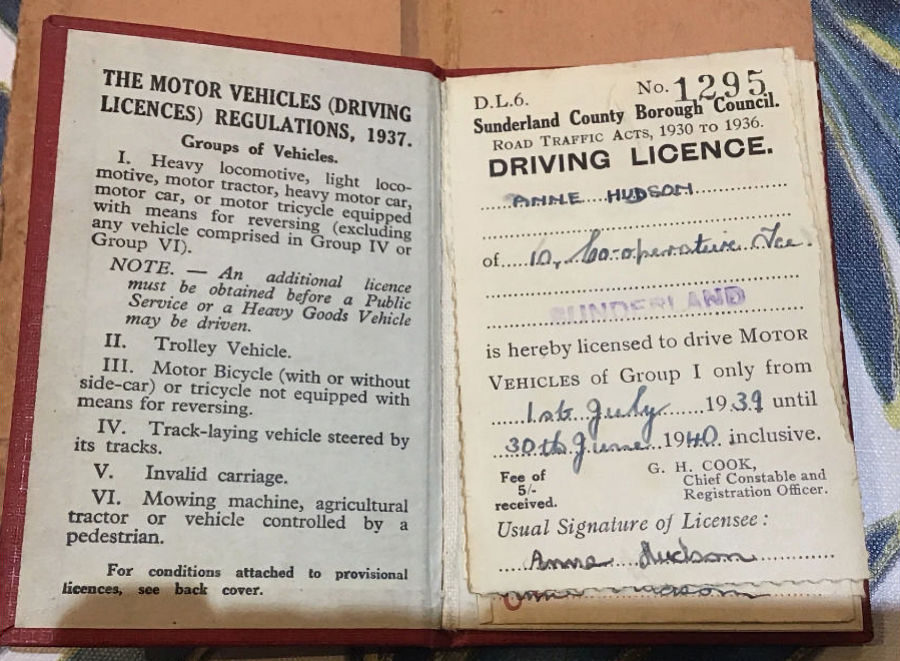 THE MOTOR VEHICLES (DRIVING
LICENCES) REGULATIONS, 1937.
Groups of Vehicles.
I. Heavy locomotive, light loco-
motive, motor tractor, heavy motor car,
motor car, or motor tricycle equipped
with means for reversing (excluding
any vehicle comprised in Group IV or
Group VI).
NOTE. — An additional licence
must be obtained before a Public
Service or a Heavy Goods Vehicle
may be driven.
II. Trolley Vehicle.
III. Motor Bicycle (with or without
side-car) or tricycle not equipped with
means for reversing.
IV. Track-laying vehicle steered by
its tracks.
V. Invalid carriage.
VI. Mowing machine, agricultural
tractor or vehicle controlled by a
pedestrian.
For conditions attached to provisional
licences, see back cover.
D.L.6. No. 1295
Sunderland County Borough Council.
ROAD TRAFFIC ACTS, 1930 TO 1936.
DRIVING LICENCE.
ANNE HUDSON
of 10, Co-operative Tce.
SUNDERLAND
is hereby licensed to drive MOTOR
VEHICLES of Group I only from
1st July 1939 until
30th June 1940 inclusive.
Fee of
5/-
received.
G. H. COOK,
Chief Constable and
Registration Officer.
Usual Signature of Licensee :
Anne Hudson